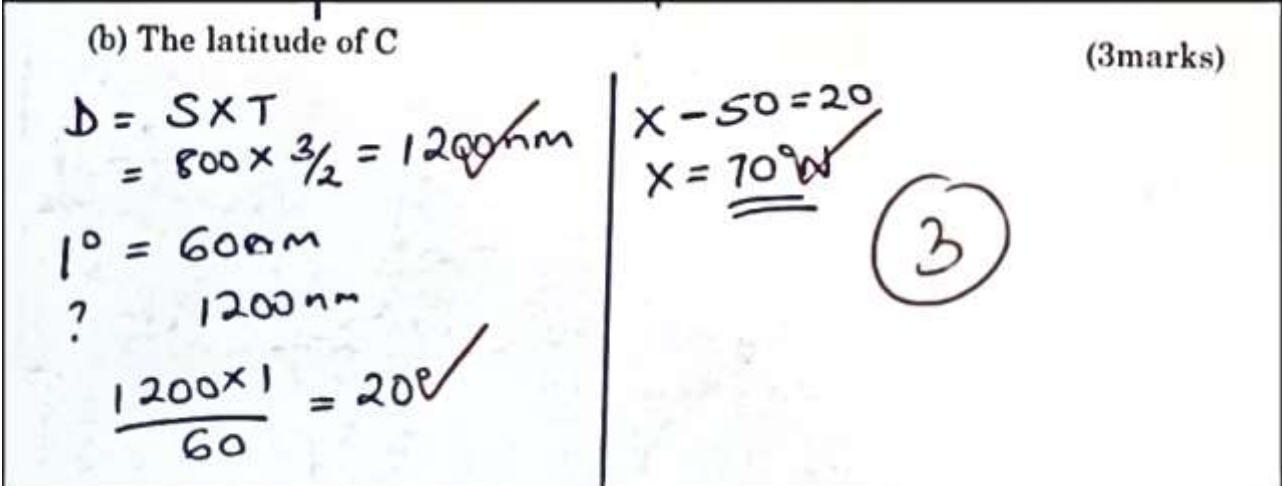 (b) The latitude of C
(3marks)
D = S X T
= 800 × 3/2 = 1200nm
1° = 60nm
? 1200nm
1200×1 = 20°
60
X - 50 = 20
X = 70°
3